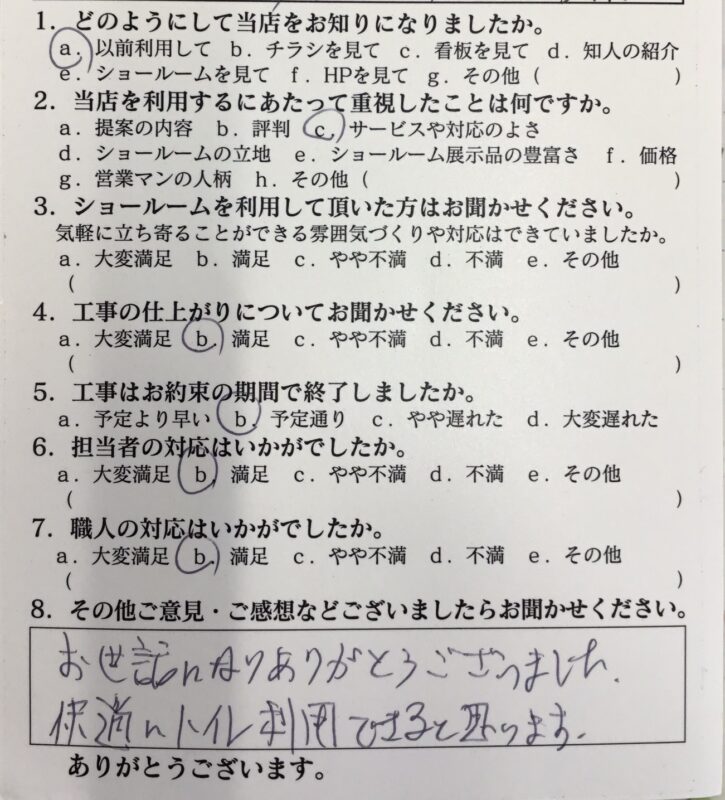 1．どのようにして当店をお知りになりましたか。
a．以前利用して b．チラシを見て c．看板を見て d．知人の紹介
e．ショールームを見て f．HPを見て g．その他（　　　　）
2．当店を利用するにあたって重視したことは何ですか。
a．提案の内容 b．評判 c．サービスや対応のよさ
d．ショールームの立地 e．ショールーム展示品の豊富さ f．価格
g．営業マンの人柄 h．その他（　　　　）
3．ショールームを利用して頂いた方はお聞かせください。
気軽に立ち寄ることができる雰囲気づくりや対応はできていましたか。
a．大変満足 b．満足 c．やや不満 d．不満 e．その他
（　　　　）
4．工事の仕上がりについてお聞かせください。
a．大変満足 b．満足 c．やや不満 d．不満 e．その他
（　　　　）
5．工事はお約束の期間で終了しましたか。
a．予定より早い b．予定通り c．やや遅れた d．大変遅れた
6．担当者の対応はいかがでしたか。
a．大変満足 b．満足 c．やや不満 d．不満 e．その他
（　　　　）
7．職人の対応はいかがでしたか。
a．大変満足 b．満足 c．やや不満 d．不満 e．その他
（　　　　）
8．その他ご意見・ご感想などございましたらお聞かせください。
お世話になりありがとうございました.
快適にトイレ利用できると思います.
ありがとうございます。